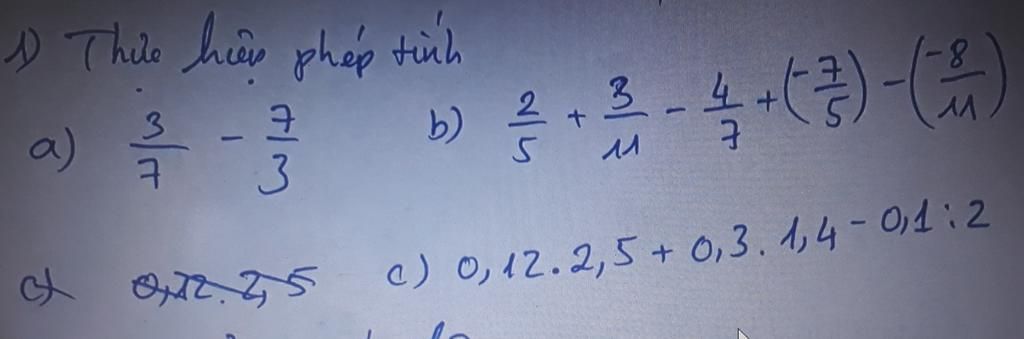 1) Thực hiện phép tính
a) 3/7 - 7/3 b) 2/5 + 3/11 - 4/7 + (-7/5) - (-8/11)
c) 0,12.2,5 c) 0,12.2,5 + 0,3.1,4 - 0,1:2